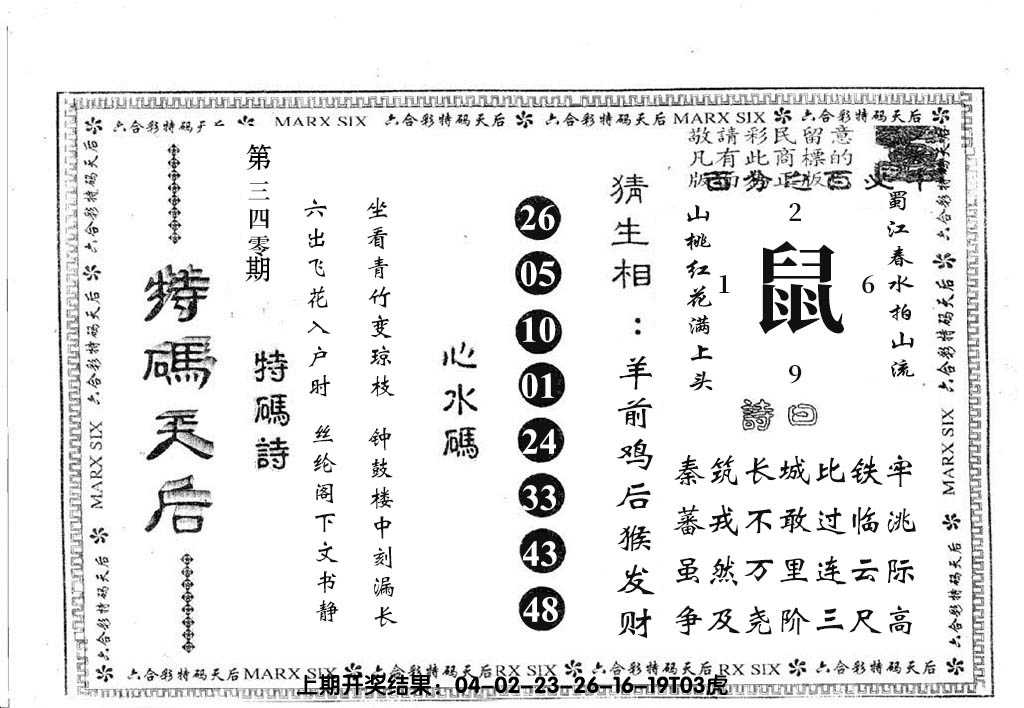 六合彩特码天 MARX SIX 六合彩特码天后 六合彩特码天后 MARX SIX 六合彩特码天后
敬請彩民留意
凡有此商標的
版面为正版
六合彩特码天后 六合彩特码天后 MARX SIX 六合彩特码天后
特碼天后
第三四零期
特碼詩
六出飞花入户时 丝纶阁下文书静
坐看青竹变琼枝 钟鼓楼中刻漏长
心水碼
26
05
10
01
24
33
43
48
猜生相:羊前鸡后猴发财
山桃红花满上头
2
1 鼠 6
9
蜀江春水拍山流
詩曰
秦筑长城比铁牢
蕃戎不敢过临洮
虽然万里连云际
争及尧阶三尺高
六合彩特码天后 六合彩特码天后 MARX SIX 六合彩特码天后
六合彩特码天后 MARX SIX 六合彩特码天后 RX SIX 六合彩特码天后 RX SIX 六合彩特码天后
上期开奖结果：04-02-23-26-16-19T03虎